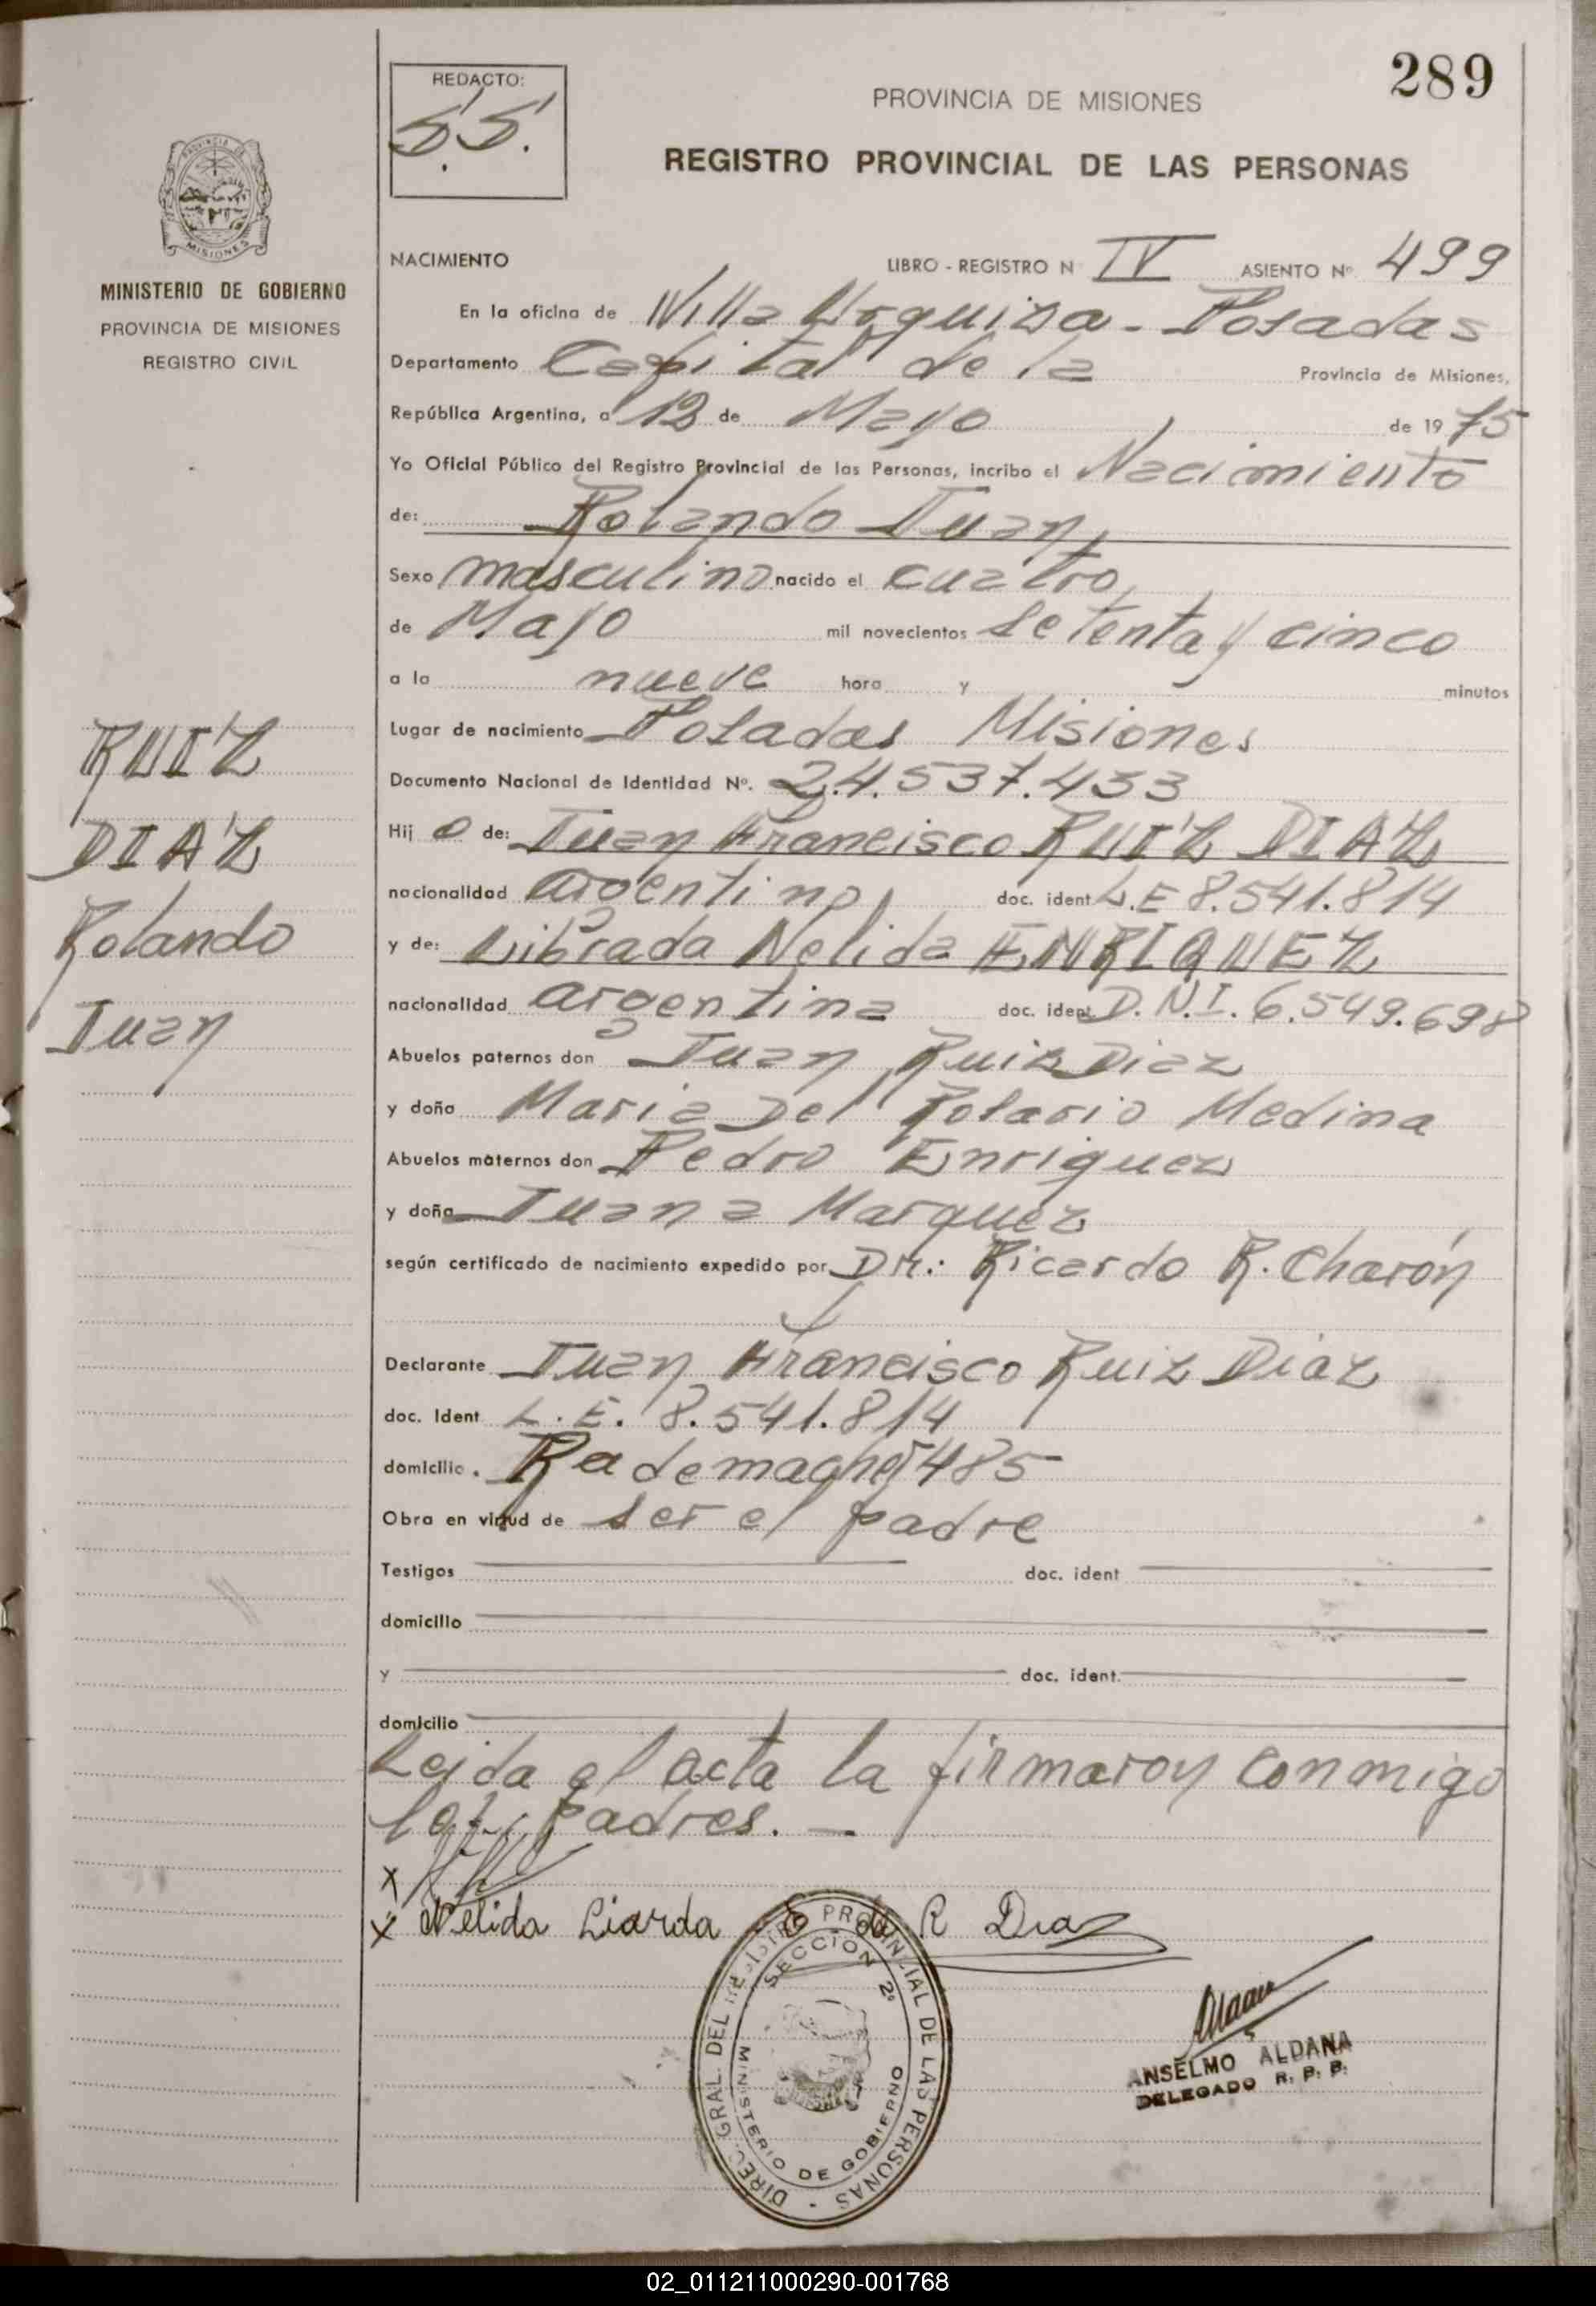 289
REDACTO:
S.S.
PROVINCIA DE MISIONES
REGISTRO PROVINCIAL DE LAS PERSONAS
MISIONES
MINISTERIO DE GOBIERNO
PROVINCIA DE MISIONES
REGISTRO CIVIL
NACIMIENTO LIBRO - REGISTRO N IV ASIENTO Nº 499
En la oficina de Villa Urquiza - Posadas
Departamento Capital de la Provincia de Misiones,
República Argentina, a 12 de Mayo de 1975
Yo Oficial Público del Registro Provincial de las Personas, incribo el Nacimiento
de: Rolando Juan
Sexo masculino nacido el cuatro
de Mayo mil novecientos setenta y cinco
a la nueve hora y minutos
Lugar de nacimiento Posadas Misiones
Documento Nacional de Identidad Nº. 24.537.433
Hij o de: Juan Francisco RUIZ DIAZ
nacionalidad argentino doc. ident L.E 8.541.814
y de: Librada Nelida ENRIQUEZ
nacionalidad argentina doc. ident D.N.I. 6.549.698
Abuelos paternos don Juan Ruiz Diaz
y doña Maria Del Rosario Medina
Abuelos maternos don Pedro Enriquez
y doña Juana Marquez
según certificado de nacimiento expedido por Dr.: Ricardo R. Charón
Declarante Juan Francisco Ruiz Diaz
doc. Ident L.E. 8.541.814
domicilio. Rademacher 485
Obra en virtud de ser el padre
Testigos doc. ident
domicilio
y doc. ident.
domicilio
Leida el acta la firmaron conmigo
los padres. —
RUIZ
DIAZ
Rolando
Juan
x
x Nelida Liarda E de R Diaz
DIREC. GRAL. DEL REGISTRO PROVINCIAL DE LAS PERSONAS
SECCION 2º
MINISTERIO DE GOBIERNO
ANSELMO ALDANA
DELEGADO R. P. P.
02_011211000290-001768